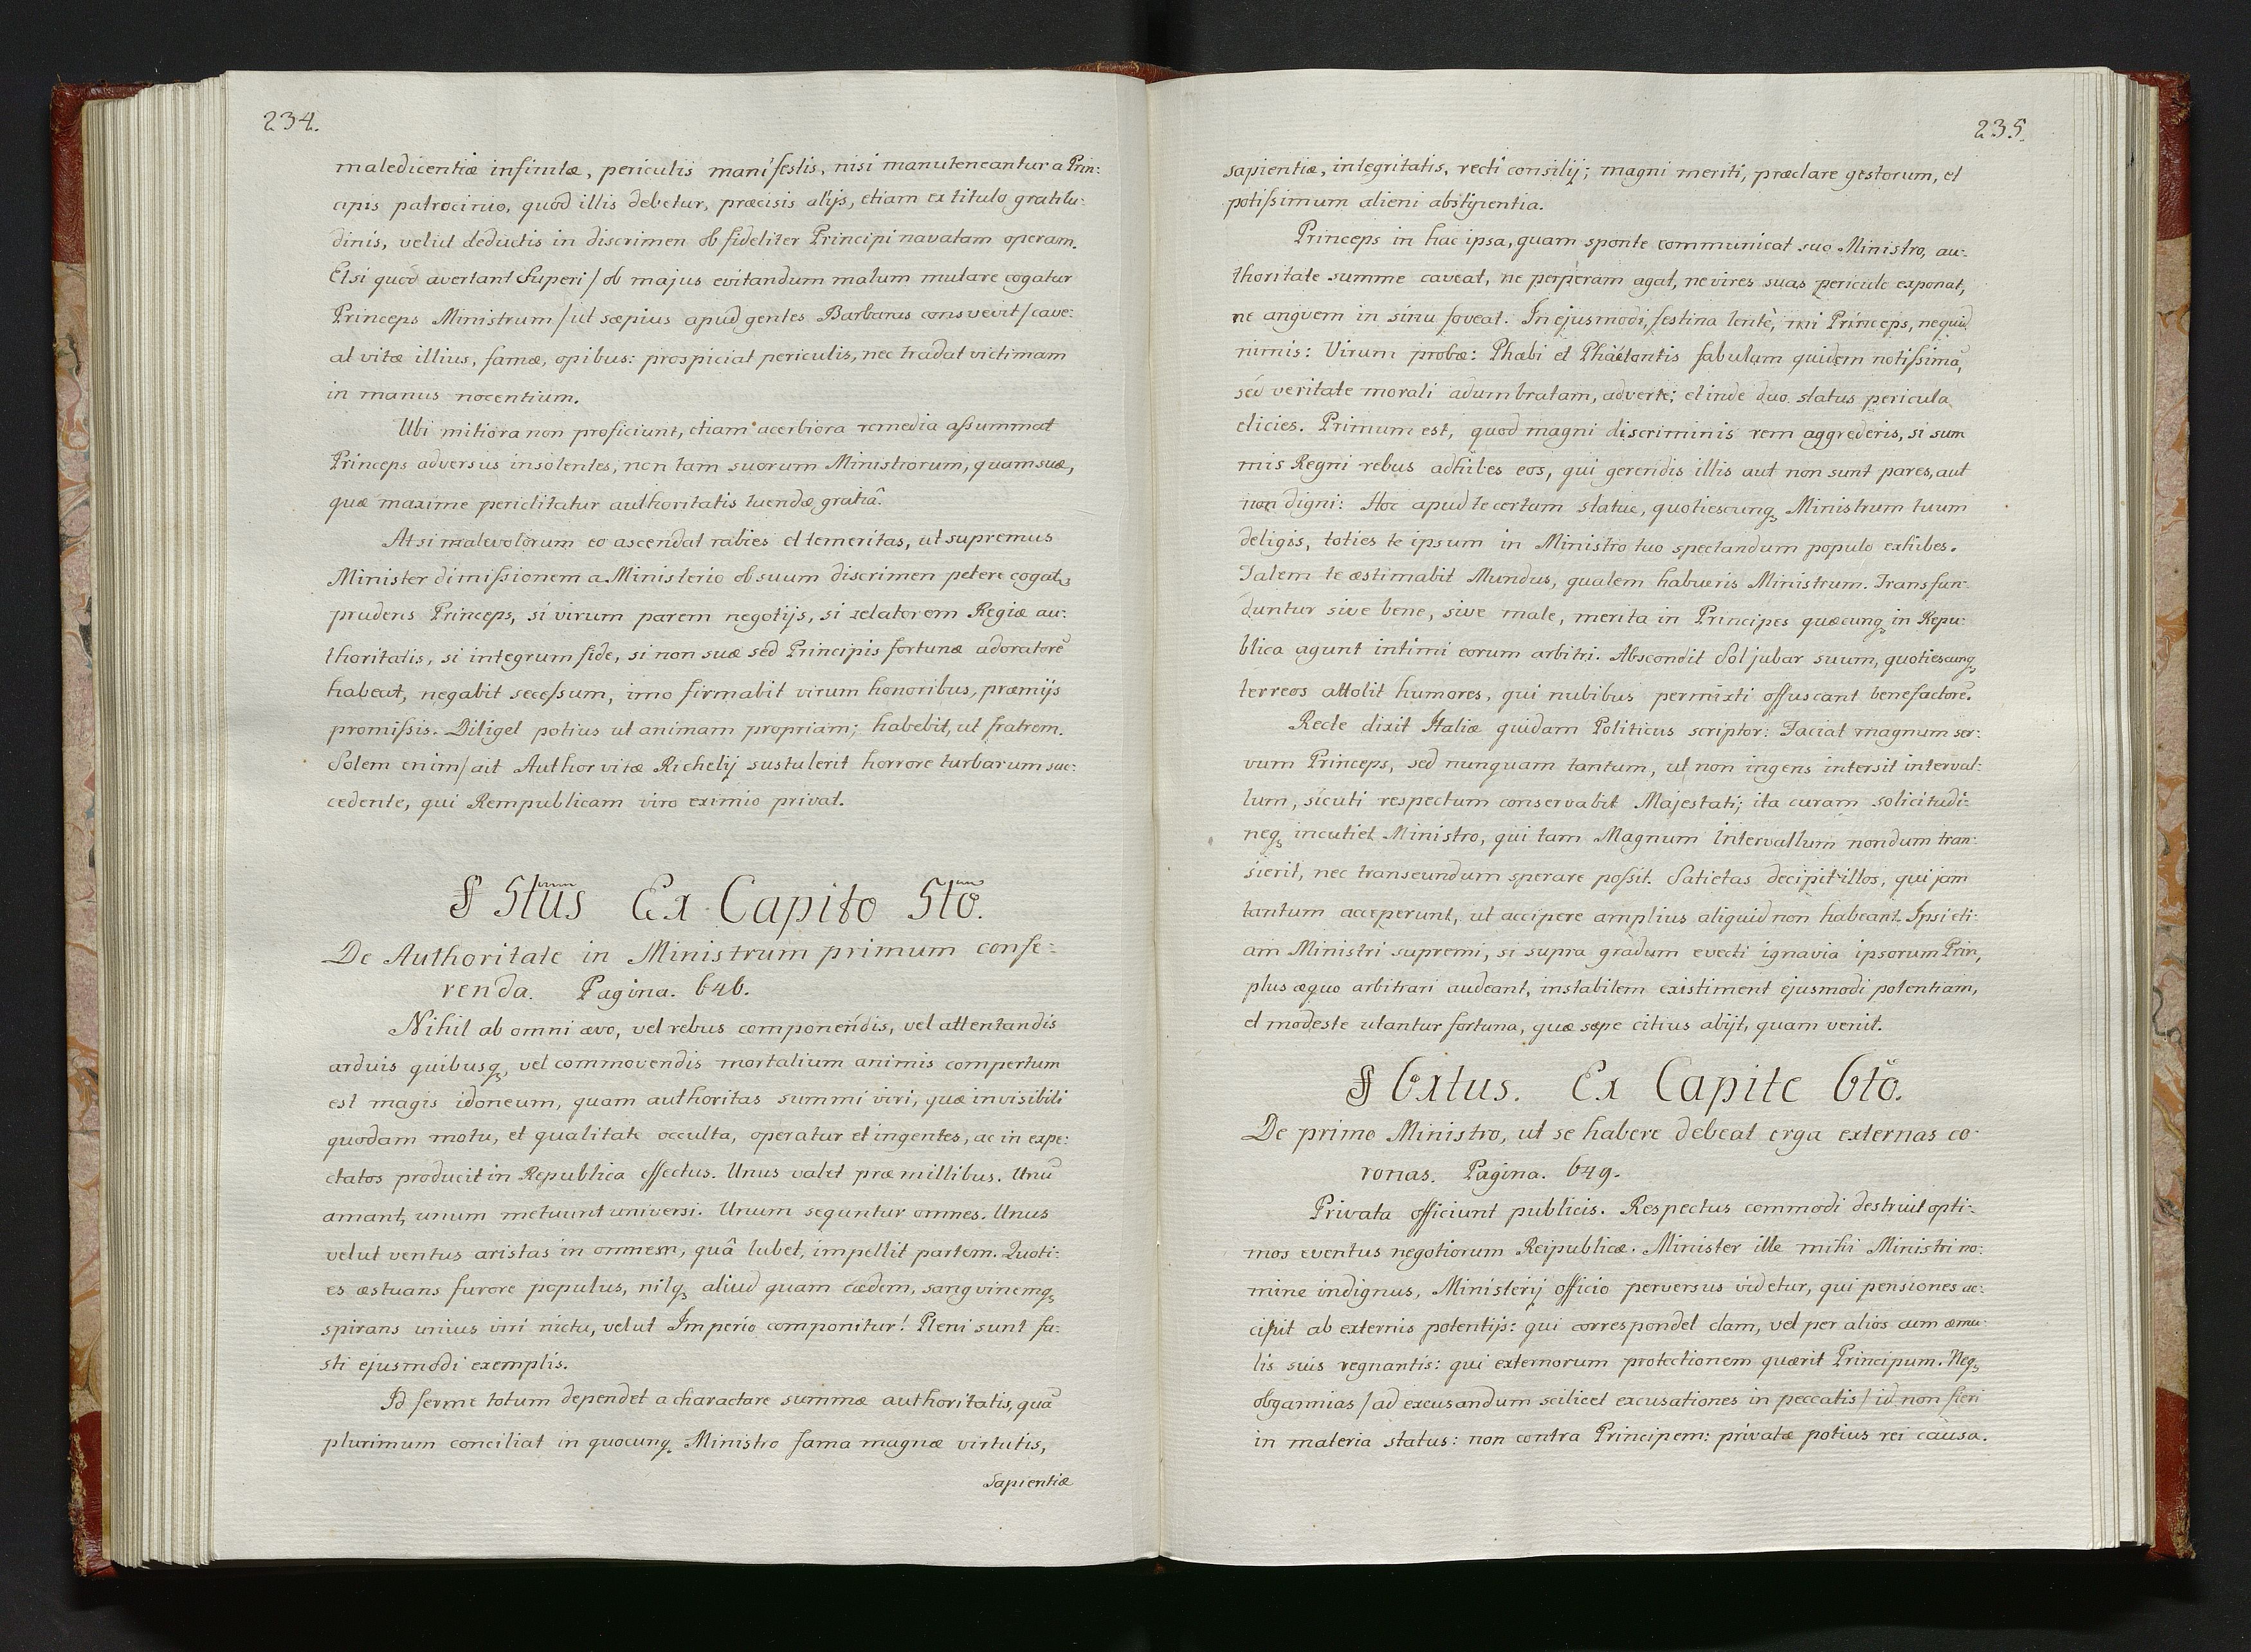 234.
maledicentiæ infinitæ, periculis manifestis, nisi manuteneantur a Prin:
cipis patrocinio, quod illis debetur, præcisis alijs, etiam ex titulo gratitu:
dinis, velut deductis in discrimen ob fideliter Principi navatam operam.
Et si quod avertant Superi / ob majus evitandum malum mutare cogatur
Princeps Ministrum / ut sæpius apud gentes Barbaras consvevit / cave:
at vitæ illius, famæ, opibus: prospiciat periculis, nec tradat victimam
in manus nocentium.
Ubi mitiora non proficiunt, etiam acerbiora remedia assummat
Princeps adversus insolentes, non tam suorum Ministrorum, quam suæ,
quæ maxime periclitatur authoritatis tuendæ gratiâ.
At si malevolorum eo ascendat rabies et temeritas, ut supremus
Minister dimissionem a Ministerio ob suum discrimen petere cogat,
prudens Princeps, si virum parem negotijs, si zelatorem Regiæ au:
thoritatis, si integrum fide, si non suæ sed Principis fortunæ adoratorē
habeat, negabit secessum, imo firmabit virum honoribus, præmijs
promissis. Diliget potius ut animam propriam; habebit, ut fratrem.
Solem enim / ait Author vitæ Richelij sustulerit horrore turbarum suc:
cedente, qui Rempublicam viro eximio privat.
§ 5tus Ex Capito 5to.
De Authoritate in Ministrum primum confe:
renda. Pagina. 646.
Nihil ab omni ævo, vel rebus componendis, vel attentandis
arduis quibusq, vel commovendis mortalium animis compertum
est magis idoneum, quam authoritas summi viri, quæ invisibili
quodam motu, et qualitate occulta, operatur et ingentes, ac in expe:
ctatos producit in Republica effectus. Unus valet præ millibus. Unū
amant, unum metuunt universi. Unum sequntur omnes. Unus
velut ventus aristas in omnem, quâ lubet, impellit partem. Quoti:
es æstuans furore populus, nilq aliud quam cædem, sangvinemq
spirans unius viri nictu, velut Imperio componitur! Pleni sunt fa:
sti ejusmodi exemplis.
Id ferme totum dependet a charactare summæ authoritatis, quā
plurimum conciliat in quocunq Ministro fama magnæ virtutis,
Sapientiæ
235.
sapientiæ, integritatis, recti consilij; magni meriti, præclare gestorum, et
potissimum alieni abstinentia.
Princeps in hac ipsa, quam sponte communicat suo Ministro, au:
thoritate summe caveat, ne perperam agat, ne vires suas periculo exponat,
ne angvem in sinu foveat. In ejusmodi, festina lentè, mi Princeps, nequid
nimis: Virum proba: Phæbi et Phaëtontis fabulam quidem notissimā,
sed veritate morali adumbratam, adverte; et inde duo status pericula
elicies. Primum est, quod magni discriminis rem aggrederis, si sum
mis Regni rebus adhibes eos, qui gerendis illis aut non sunt pares, aut
non digni: Hoc apud te certum statue, quotiescunq Ministrum tuum
deligis, toties te ipsum in Ministro tuo spectandum populo exhibes.
Talem te æstimabit Mundus, qualem habueris Ministrum. Transfun:
duntur sive bene, sive male, merita in Principes quæcunq in Repu:
blica agunt intimi eorum arbitri. Abscondit Sol jubar suum, quotiescunq
terreos attolit humores, qui nubibus permixti offuscant benefactorē.
Recte dixit Italiæ quidam Politicus scriptor: Faciat magnum ser:
vum Princeps, sed nunquam tantum, ut non ingens intersit interval:
lum, sicuti respectum conservabit Majestati; ita curam solicitudi:
neq incutiet Ministro, qui tam Magnum intervallum nondum tran:
sierit, nec transeundum sperare possit. Satietas decipit illos, qui jam
tantum acceperunt, ut accipere amplius aliquid non habeant. Ipsi eti:
am Ministri supremi, si supra gradum evecti ignavia ipsorum Prin,
plus æquo arbitrari audeant, instabilem existiment ejusmodi potentiam,
et modeste utantur fortuna, quæ sæpe citius abijt, quam venit.
§ 6xtus. Ex Capite 6to.
De primo Ministro, ut se habere debeat erga externas co:
ronas. Pagina. 649.
Privata officiunt publicis. Respectus commodi destruit opti:
mos eventus negotiorum Reipublicæ. Minister ille mihi Ministri no:
mine indignus, Ministerij officio perversus videtur, qui pensiones ac:
cipit ab externis potentijs: qui correspondet clam, vel per alios cum æmu:
lis suis regnantis: qui externorum protectionem quærit Principum. Neq
obgannias / ad excusandum scilicet excusationes in peccatis / id non fieri
in materia status: non contra Principem: privatæ potius rei causa.